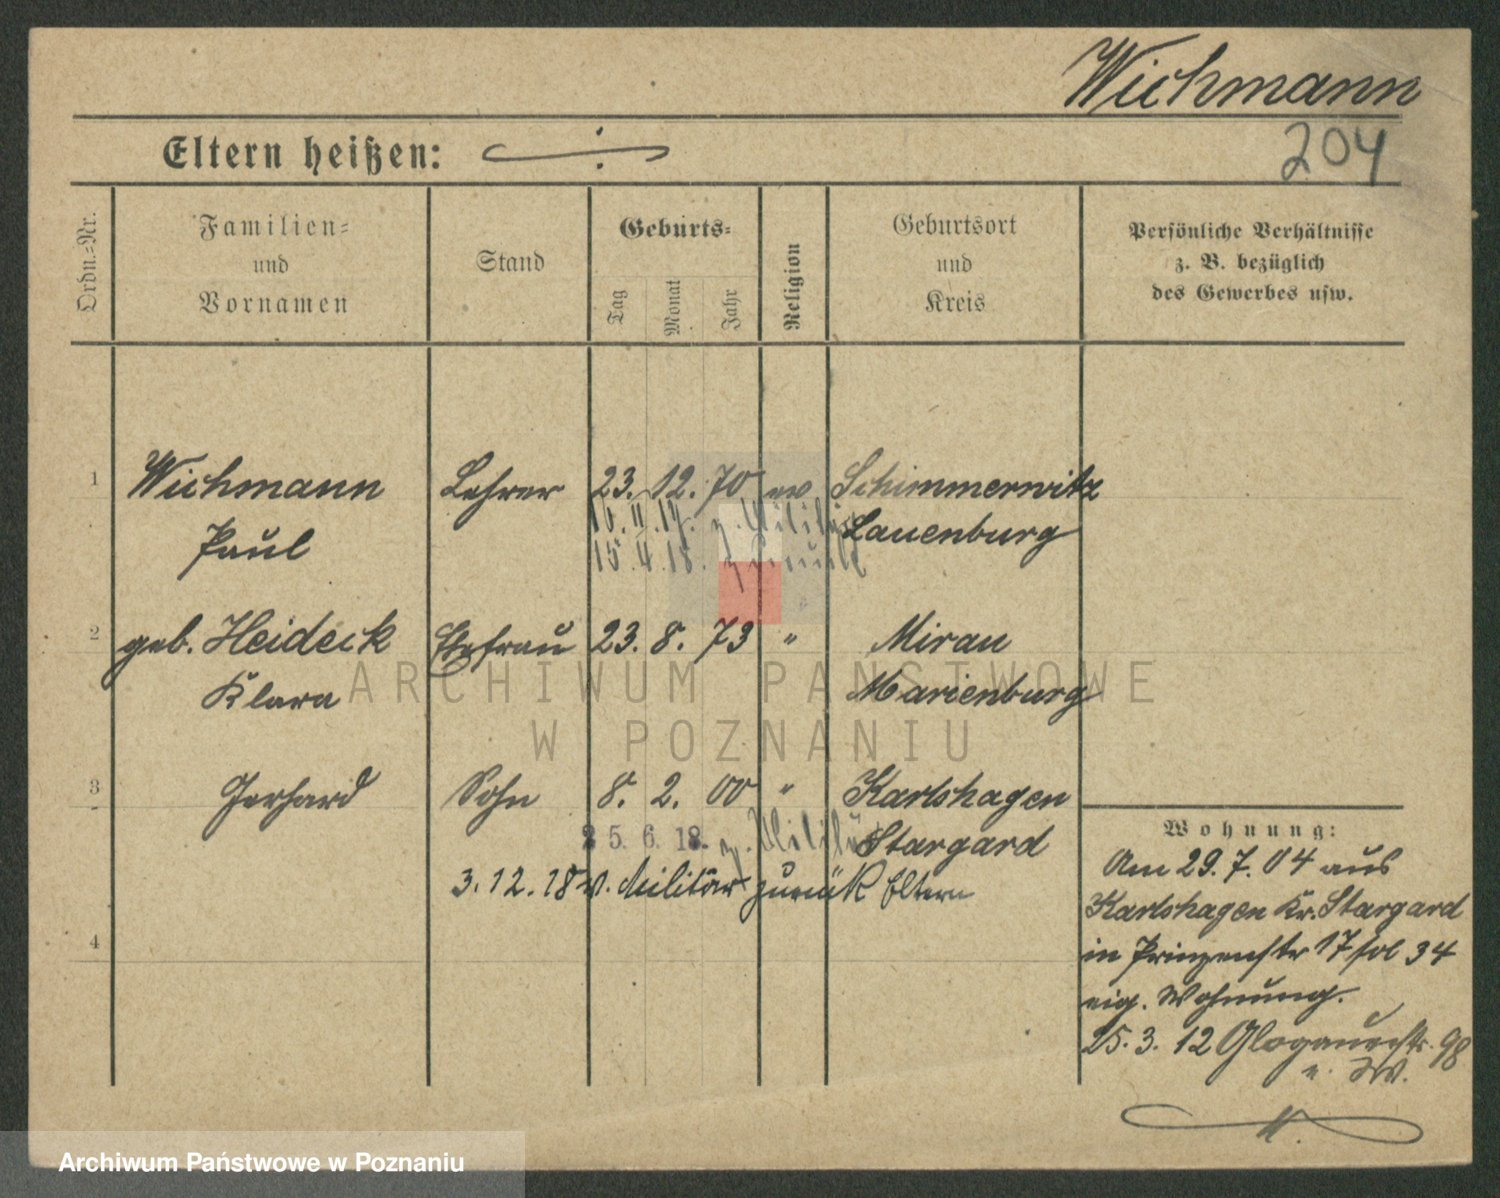 Wichmann
204
Eltern heißen:
Ordn.-Nr.
Familien-
und
Vornamen
Stand
Geburts-
Tag
Monat
Jahr
Religion
Geburtsort
und
Kreis
Persönliche Verhältnisse
z. B. bezüglich
des Gewerbes usw.
1 Wichmann Lehrer 23. 12. 70 ev Schimmerwitz
Paul Lauenburg
z. Militär
15. 4. 18. zurück
2 geb. Heideck Ehefrau 23. 8. 73 " Mirau
Klara Marienburg
3 Gerhard Sohn 8. 2. 00 " Karlshagen
25. 6. 18. z. Militär Stargard
3. 12. 18 v. Militär zurück Eltern
4
Wohnung:
Am 29. 7. 04 aus
Karlshagen Kr. Stargard
in Prinzenstr 17 34
eig. Wohnung.
25. 3. 12 Glogauerstr. 98
ARCHIWUM PAŃSTWOWE
W POZNANIU
Archiwum Państwowe w Poznaniu